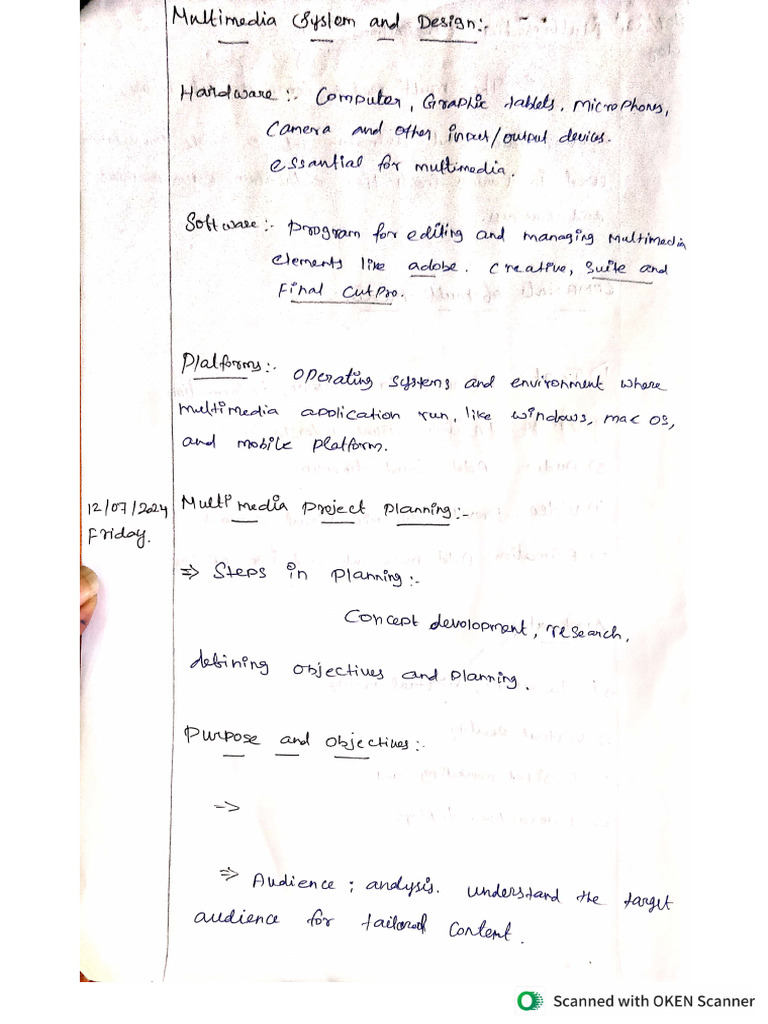 Multimedia System and Design:-
Hardware:- Computer, Graphic tablets, Microphones,
Camera and other input/output devices.
essantial for multimedia.
Software:- program for editing and managing multimedia
elements like adobe. creative, suite and
Final cutpro.
Platforms:- operating systems and environment where
multimedia application run, like windows, mac os,
and mobile platform.
12/07/2024
Friday.
Multimedia project planning:-
⇒ Steps in planning:-
Concept devolopment, research,
defining objectives and planning.
Purpose and objectives:-
->
⇒ Audience; analysis. understand the target
audience for tailored content.
Scanned with OKEN Scanner